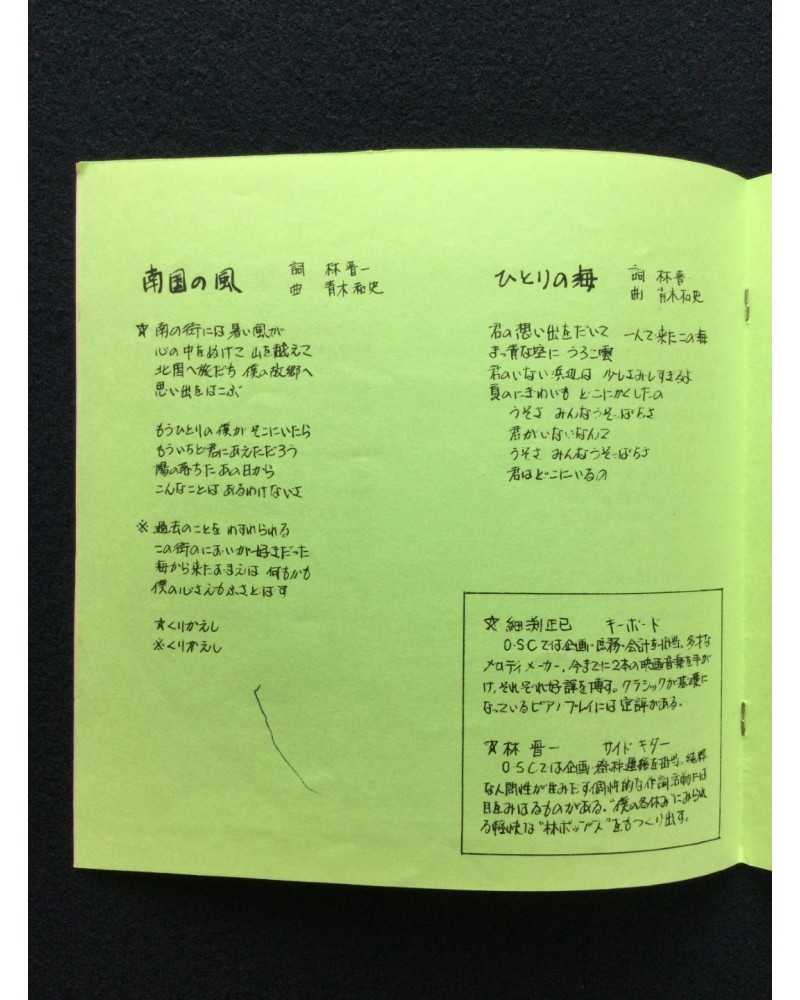 南国の風
詞 林晋一
曲 青木和史
☆ 南の街には暑い風が
心の中をぬけて 山を越えて
北国へ旅だち 僕の故郷へ
思い出をはこぶ
もうひとりの僕が そこにいたら
もういちど君にあえただろう
陽の落ちた あの日から
こんなことは あるわけないさ
※ 過去のことを わすれられる
この街のにおいが 好きだった
海から来たおまえは 何もかも
僕の心さえもふきとばす
☆くりかえし
※くりかえし
ひとりの海
詞 林晋一
曲 青木和史
君の想い出をだいて 一人で来たこの海
まっ青な空に うろこ雲
君のいない浜辺は 少しさみしすぎるよ
夏のにぎわいも どこにかくしたの
うそさ みんなうそっぱちさ
君がいないなんて
うそさ みんなうそっぱちさ
君はどこにいるの
☆ 細渕正巳 キーボード
O・SCでは企画・庶務・会計を担当。多才な
メロディメーカー。今までに2本の映画音楽を手が
け、それぞれ好評を博す。クラシックが基礎に
なっているピアノプレイには定評がある。
☆ 林 晋一 サイドギター
O・SCでは企画・渉外運搬を担当。
な人間性が生みだす個性的な作詞活動には
目をみはるものがある。"僕の冬休み"にみられ
る軽快な"林ポップス"をもつくり出す。